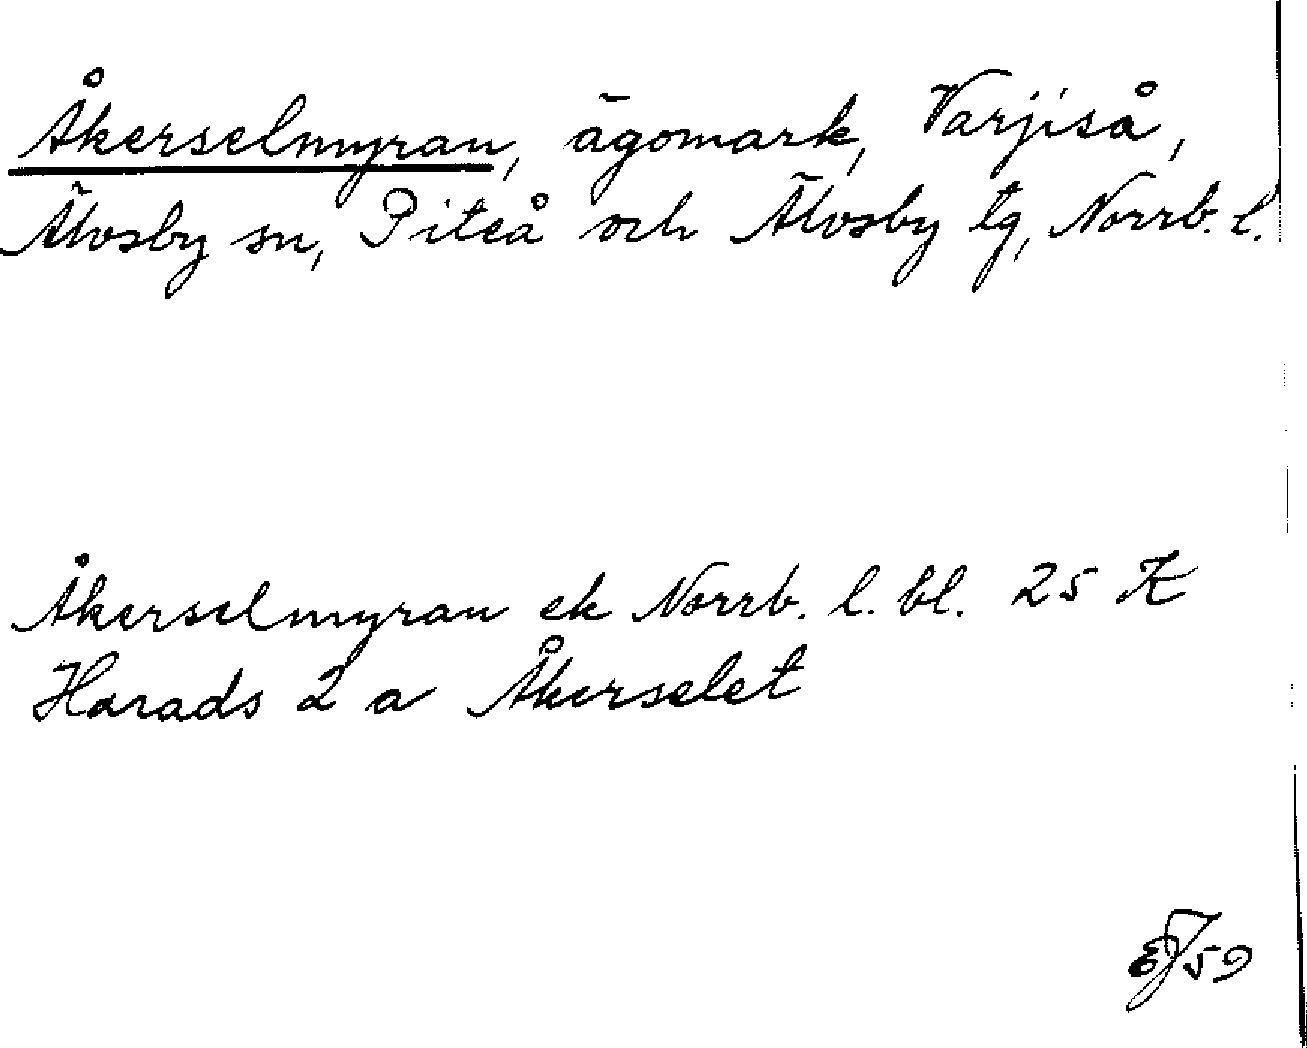 Åkerselmyran, ägomark, Varjiså,
Älvsby sn, Piteå och Älvsby tg, Norrb. l.
Åkerselmyran ek Norrb. l. bl. 25 K
Harads 2 a Åkerselet
EJ 59